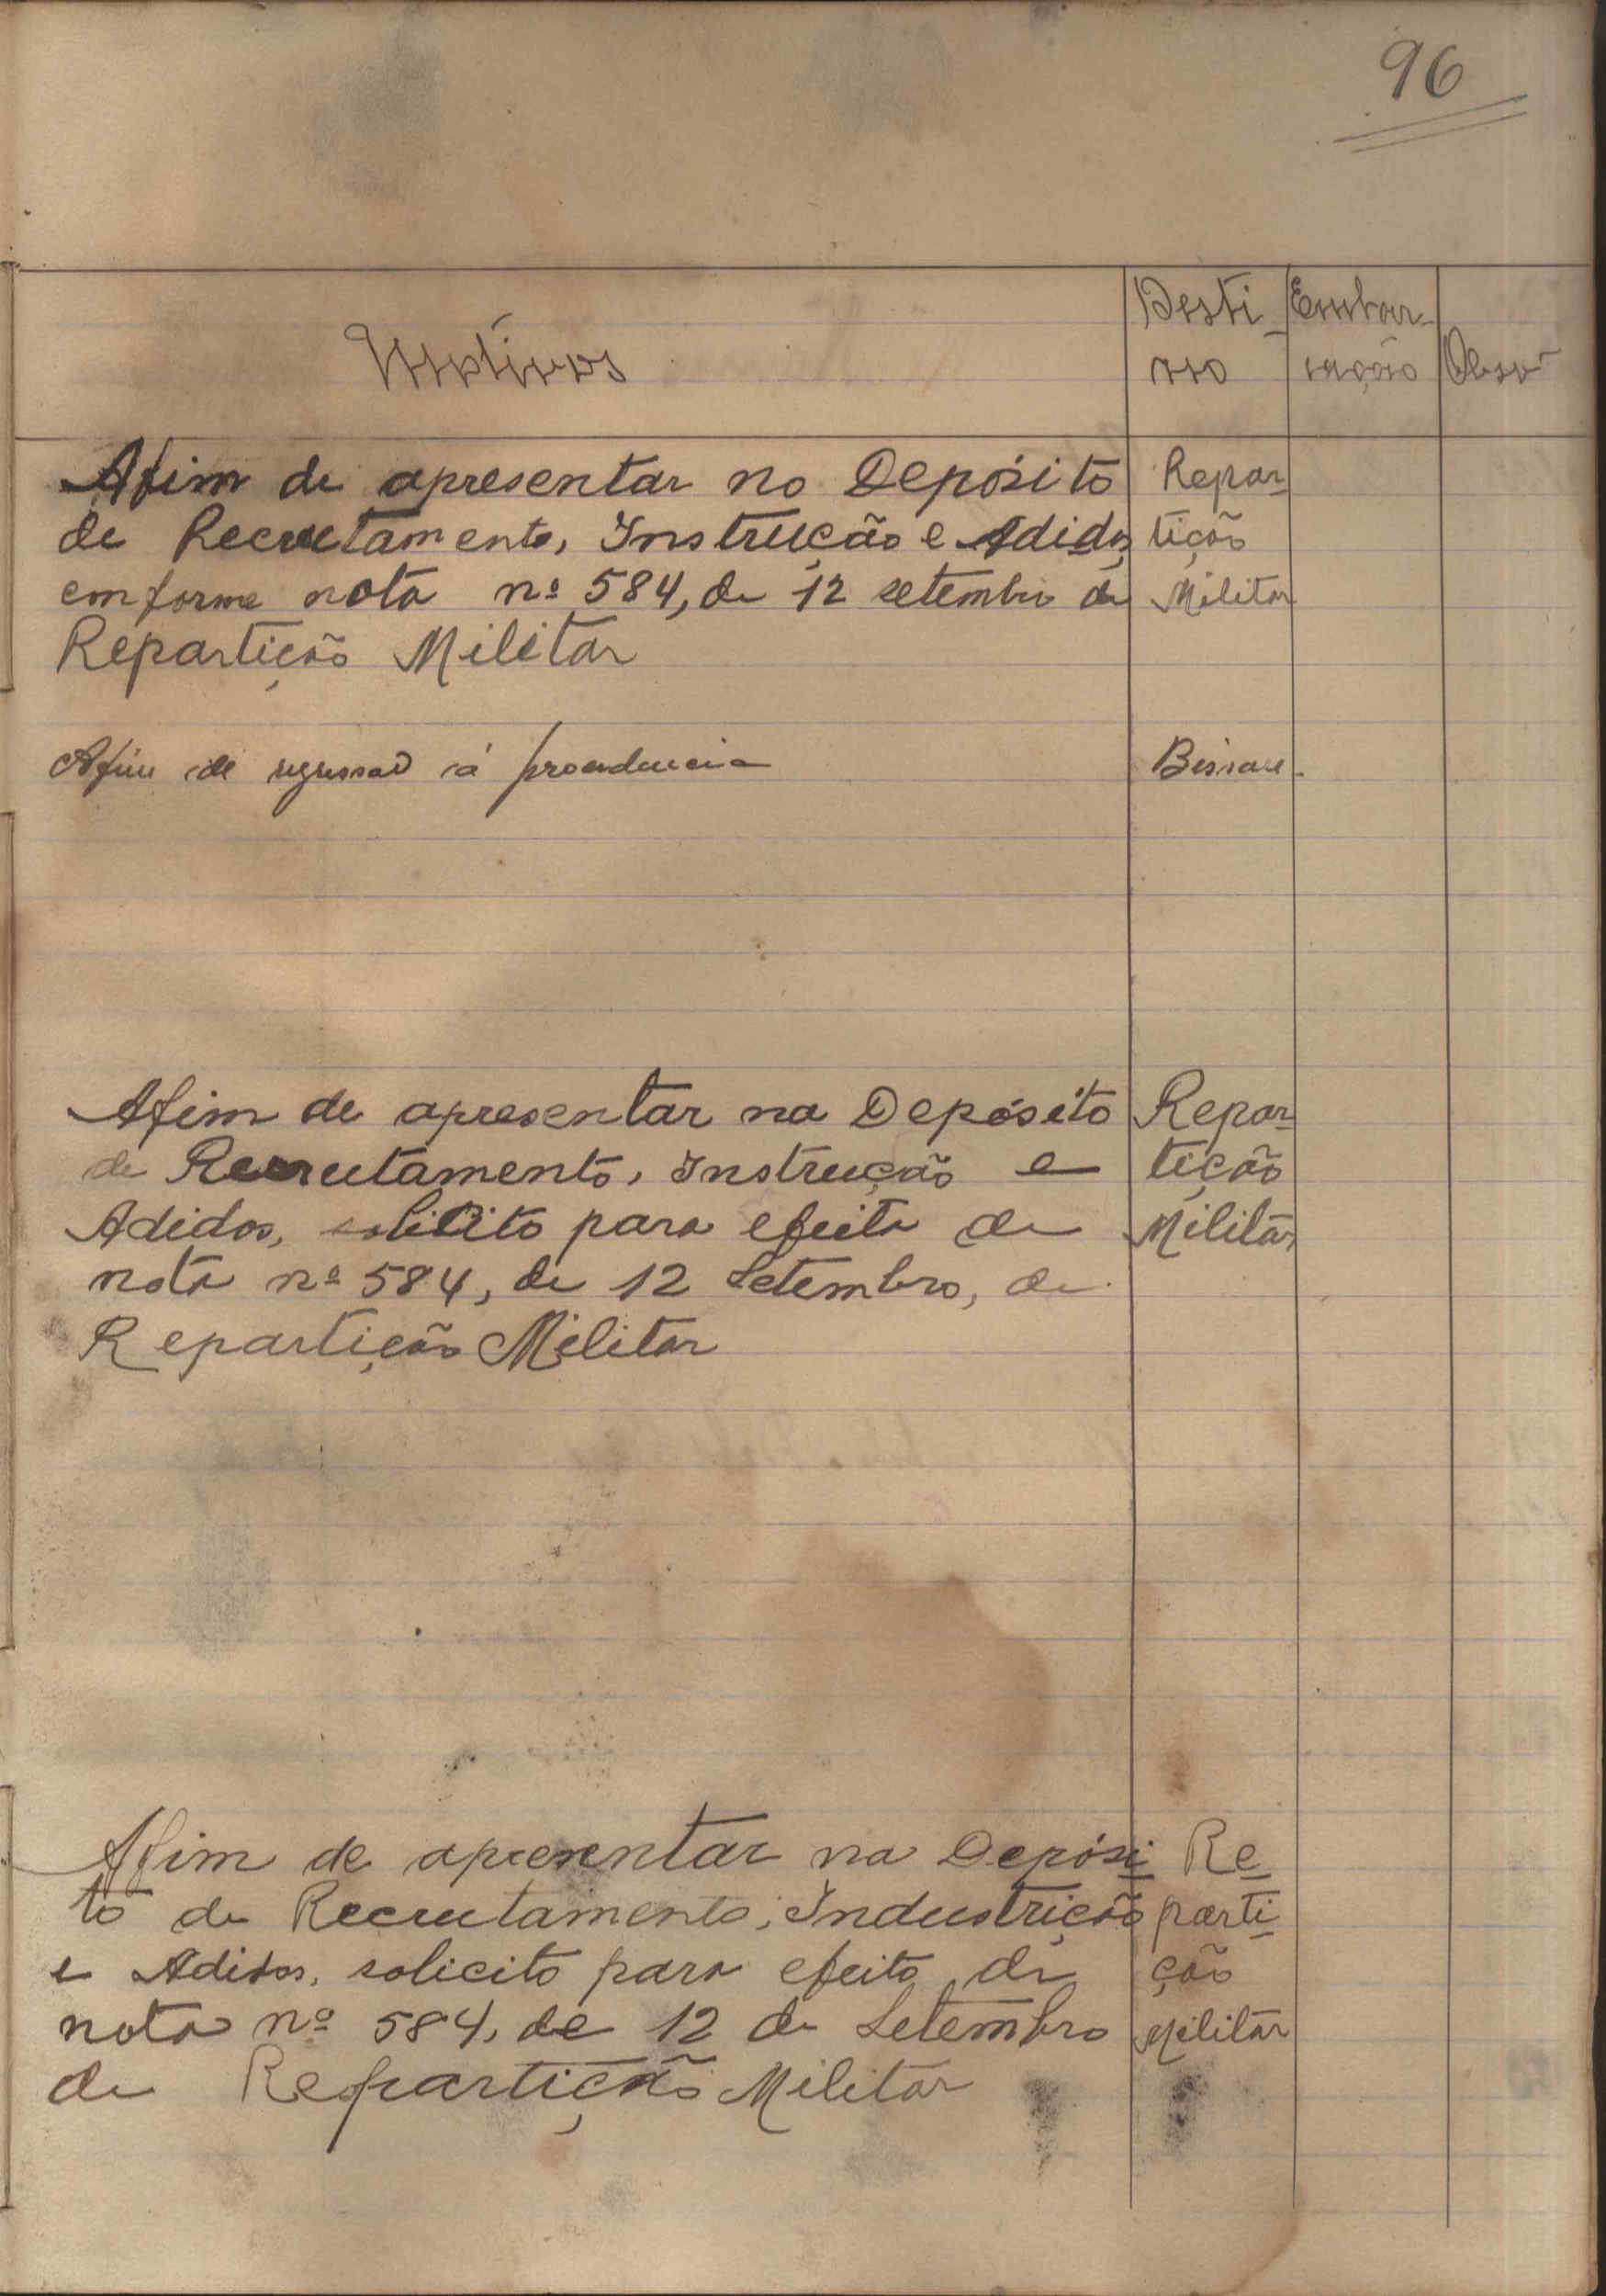 96
Motivos
Desti-
no
Embar-
cação
Obsv
Afim de apresentar no Depósito
de Recrutamento, Instrução e Adidos
emforme nota nº 584, de 12 setembro de
Repartição Militar
Repar-
tição
Militar
Afim de regressar á procedencia
Bissau.
Afim de apresentar na Depósito
de Recrutamento, Instrução e
Adidos, solicito para efeito de
nota nº 584, de 12 Setembro, de
Repartição Militar
Repar-
tição
Militar
Afim de apresentar na Depósi-
to de Recrutamento, Industrição
e Adidos, solicito para efeito de
nota nº 584, de 12 de Setembro
de Repartição Militar
Re-
parti-
ção
Militar